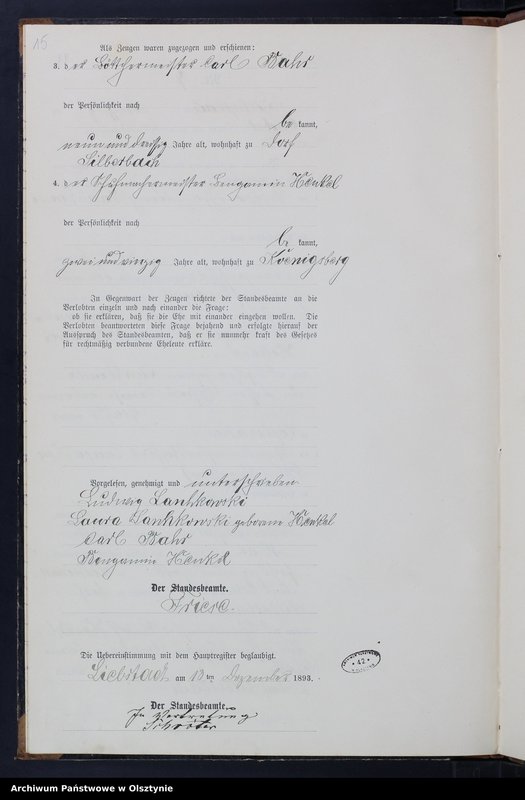 15
Als Zeugen waren zugezogen und erschienen:
3. der Böttchermeister Carl Bahr
der Persönlichkeit nach
be kannt,
neun und dreißig Jahre alt, wohnhaft zu Dorf
Silberbach
4. der Schuhmachermeister Bengamin Henkel
der Persönlichkeit nach
be kannt,
zwei und vierzig Jahre alt, wohnhaft zu Koenigsberg
In Gegenwart der Zeugen richtete der Standesbeamte an die
Verlobten einzeln und nach einander die Frage:
ob sie erklären, daß sie die Ehe mit einander eingehen wollen. Die
Verlobten beantworteten diese Frage bejahend und erfolgte hierauf der
Ausspruch des Standesbeamten, daß er sie nunmehr kraft des Gesetzes
für rechtmäßig verbundene Eheleute erkläre.
Vorgelesen, genehmigt und unterschrieben
Ludwig Lanhkowski
Laura Lanhkowski geborene Henkel
Carl Bahr
Bengamin Henkel
Der Standesbeamte.
Friese.
Die Uebereinstimmung mit dem Hauptregister beglaubigt.
Liebstadt am Dezember 1893.
Der Standesbeamte.
In Vertretung
42
Archiwum Państwowe w Olsztynie